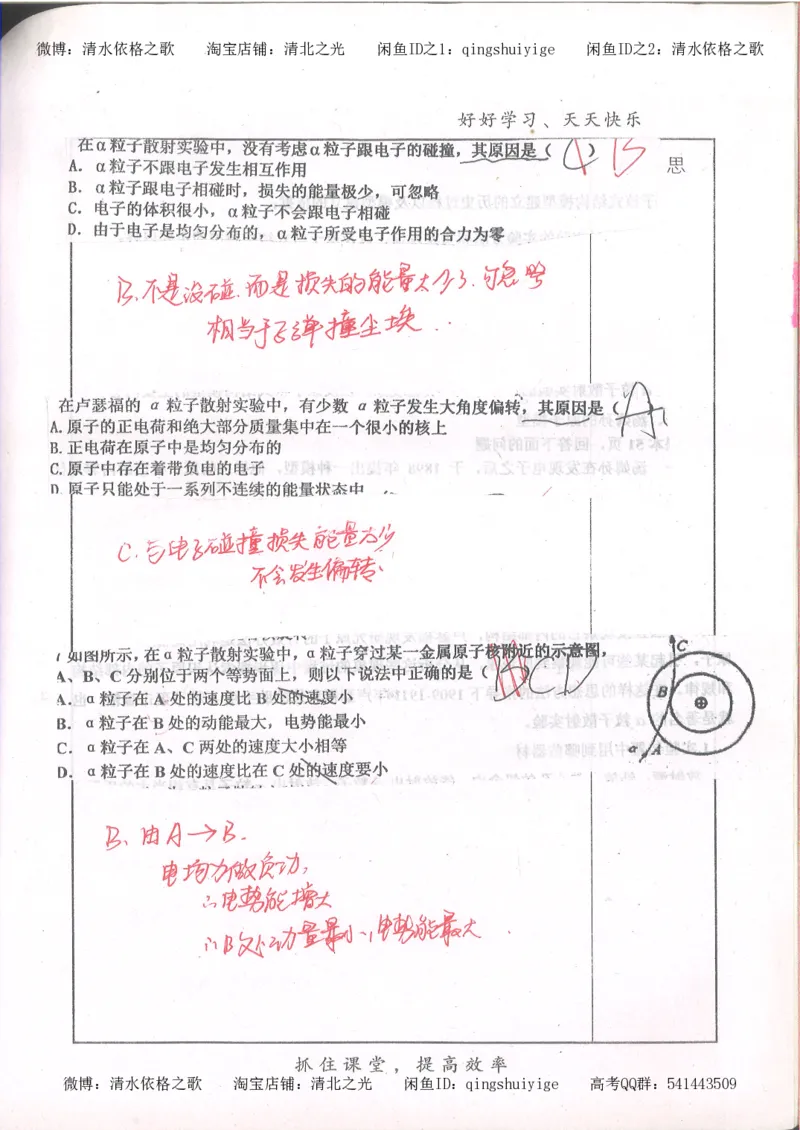 微博：清水依格之歌 淘宝店铺：清北之光 闲鱼ID之1：qingshuiyige 闲鱼ID之2：清水依格之歌
好好学习、天天快乐
在α粒子散射实验中，没有考虑α粒子跟电子的碰撞，其原因是（ ） B
思
A. α粒子不跟电子发生相互作用
B. α粒子跟电子相碰时，损失的能量极少，可忽略
C. 电子的体积很小，α粒子不会跟电子相碰
D. 由于电子是均匀分布的，α粒子所受电子作用的合力为零
B.不是没碰.而是损失的能量太少.可忽略
相当于子弹撞尘埃
在卢瑟福的 α 粒子散射实验中，有少数 α 粒子发生大角度偏转，其原因是（ A
A.原子的正电荷和绝大部分质量集中在一个很小的核上
B.正电荷在原子中是均匀分布的
C.原子中存在着带负电的电子
D.原子只能处于一系列不连续的能量状态中
C.与电子碰撞损失能量太少
不会发生偏转.
如图所示，在α粒子散射实验中，α粒子穿过某一金属原子核附近的示意图，
A、B、C 分别位于两个等势面上，则以下说法中正确的是（ CD
A. α粒子在 A 处的速度比 B 处的速度小
B. α粒子在 B 处的动能最大，电势能最小
C. α粒子在 A、C 两处的速度大小相等
D. α粒子在 B 处的速度比在 C 处的速度要小
C
B
α
A
B、由A→B.
电场力做负功,
∴电势能增大
∴B处动量最小,电势能最大
抓住课堂，提高效率
微博：清水依格之歌 淘宝店铺：清北之光 闲鱼ID：qingshuiyige 高考QQ群：541443509